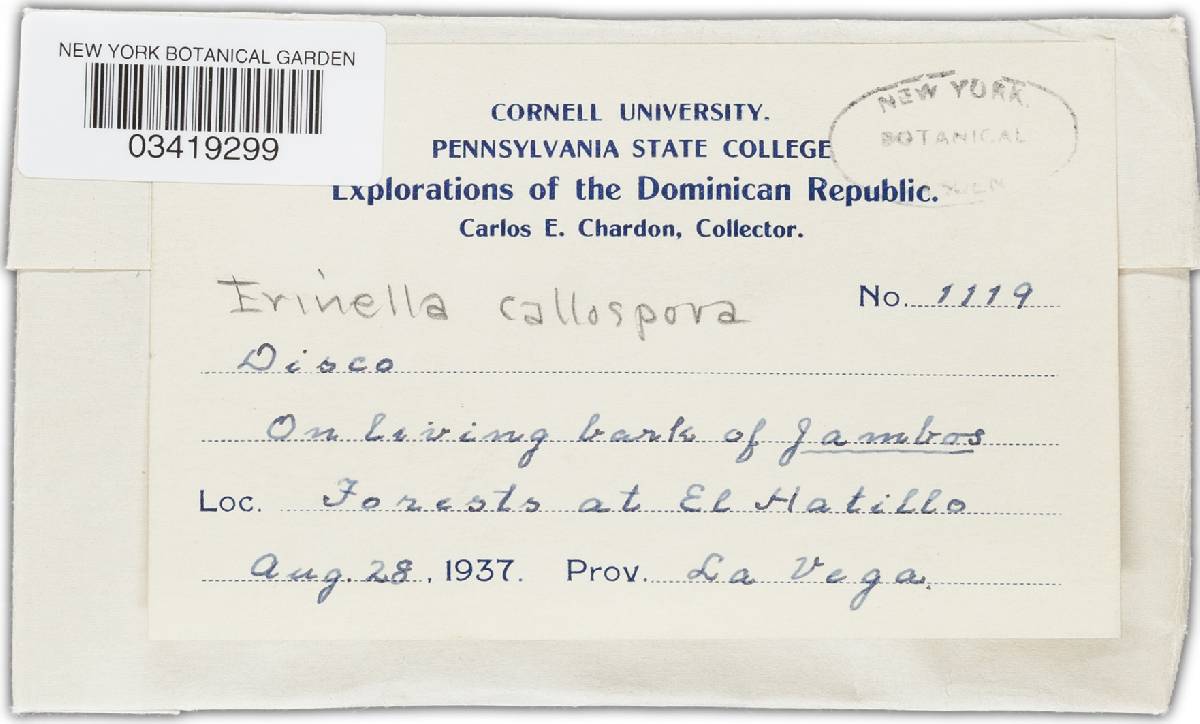 NEW YORK BOTANICAL GARDEN
03419299
NEW YORK
BOTANICAL
CORNELL UNIVERSITY.
PENNSYLVANIA STATE COLLEGE
Explorations of the Dominican Republic.
Carlos E. Chardon, Collector.
Erinella callospora
No. 1119
Disco
On living bark of Jambos
Loc. Forests at El Hatillo
Aug. 28, 1937. Prov. La Vega.